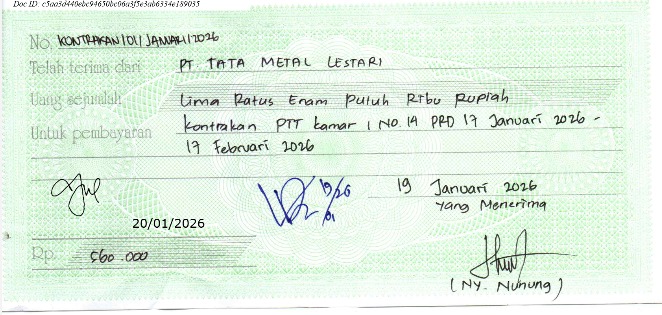 Doc ID: c5aa3d440ebc94650bc06a3f5e3ab6334e189035
No. KONTRAKAN/01/JANUARI/2026
Telah terima dari PT. TATA METAL LESTARI
Uang sejumlah Lima Ratus Enam Puluh Ribu Rupiah
Untuk pembayaran Kontrakan PTT Kamar 1 No. 1A PRD 17 Januari 2026 -
17 Februari 2026
19/01 26
19 Januari 2026
Yang Menerima
20/01/2026
Rp. 560.000
(NY. Nuhung)